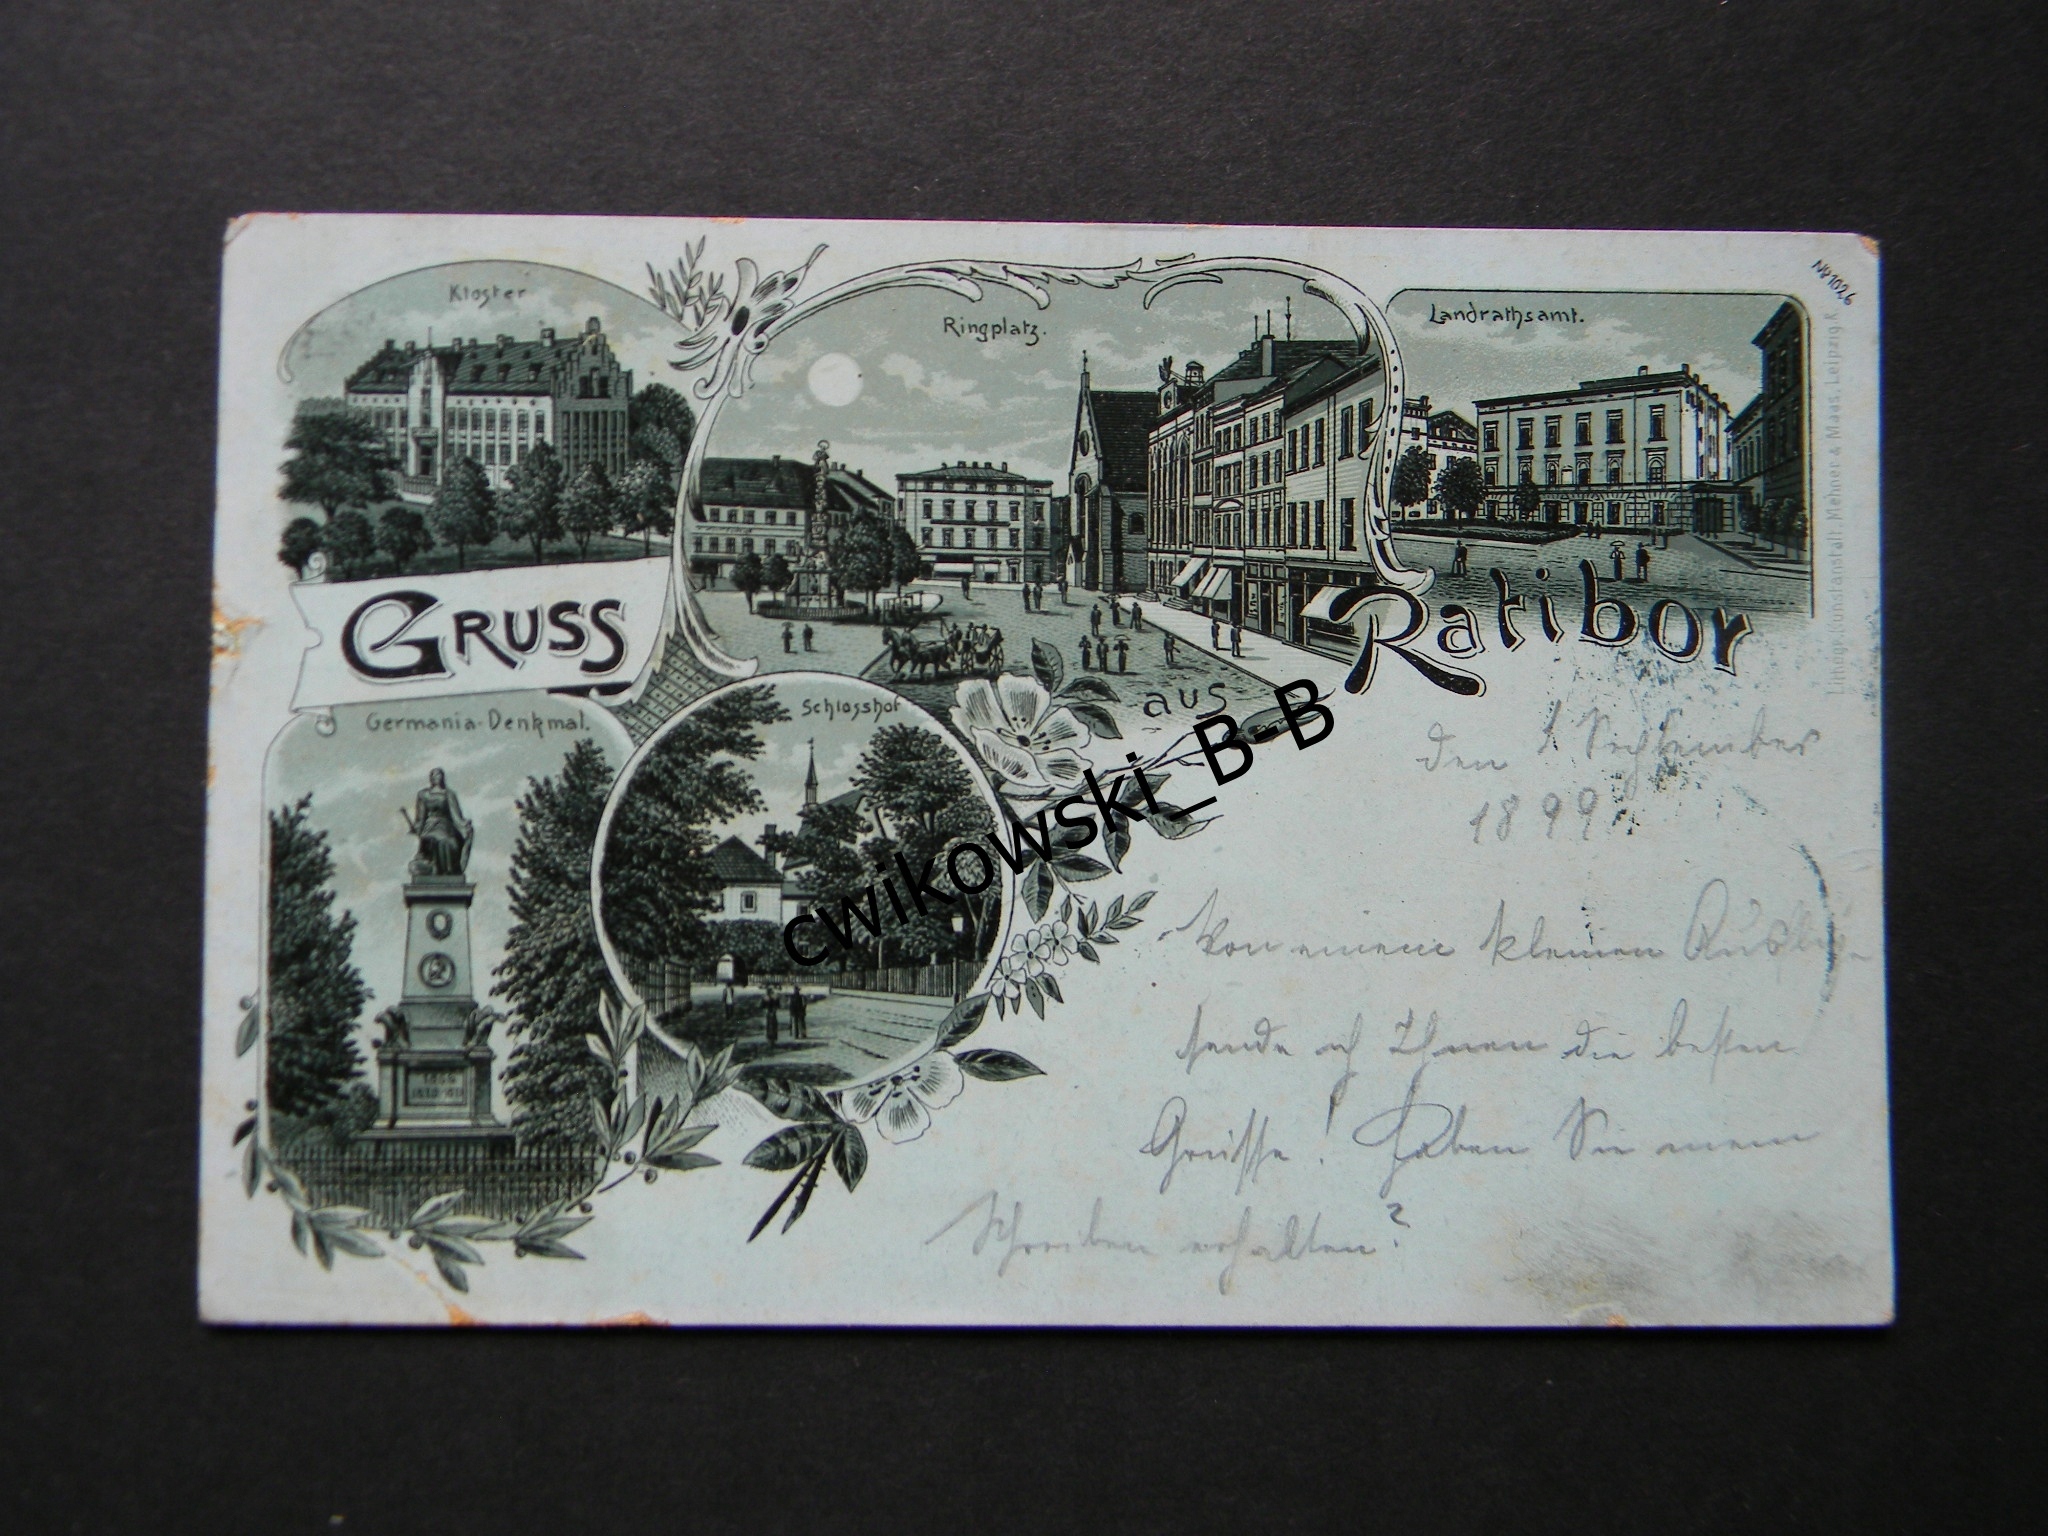 Kloster
Ringplatz.
Landrathsamt.
No 1026
Lithogr. Kunstanstalt Mehner & Maas, Leipzig.R.
GRUSS
aus
Ratibor
Germania-Denkmal.
Schlosshof
1866
1870-1871
cwikowski_B-B
den 1 September
1899
Von einem kleinen
sende ich Ihnen die besten
Grüsse! Haben Sie mein
Schreiben erhalten?